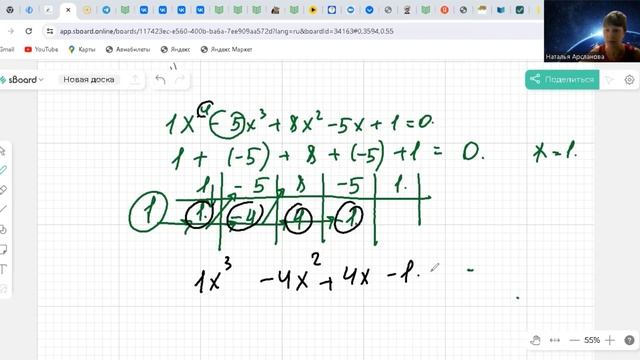 app.sboard.online/boards/117423ec-e560-400b-ba6a-7ee909aa572d?lang=ru&boardId=34163#0.3594,0.55
YouTube
Карты
Авиабилеты
Яндекс
Яндекс Маркет
Наталья Арсланова
sBoard
Новая доска
Поделиться
1x⁴ - 5x³ + 8x² - 5x + 1 = 0.
1 + (-5) + 8 + (-5) + 1 = 0. x = 1.
1 | -5 | 8 | -5 | 1.
1 | 1. | -4 | 4 | -1
1x³ - 4x² + 4x - 1.
55%